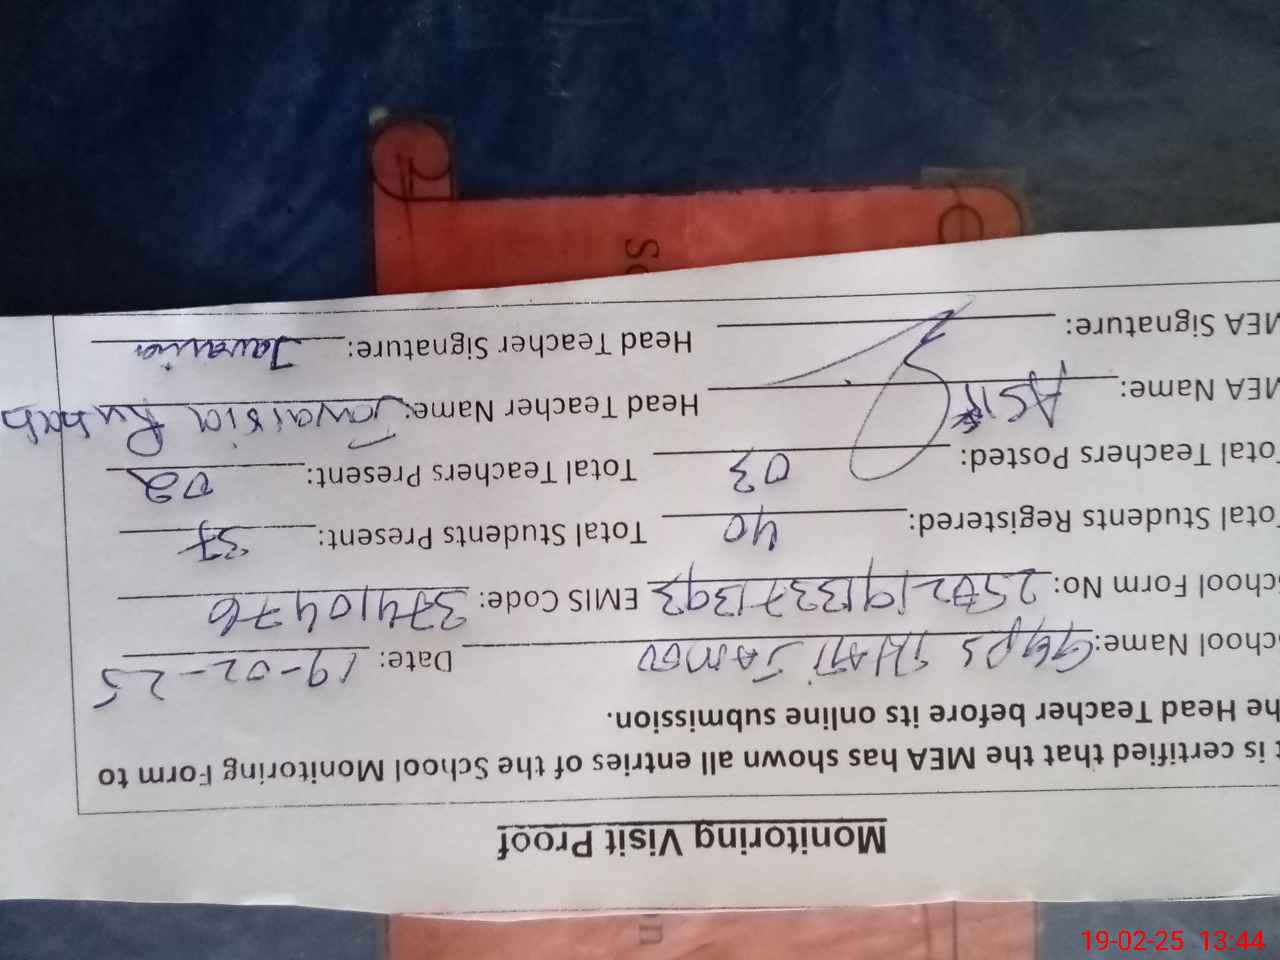 Monitoring Visit Proof
t is certified that the MEA has shown all entries of the School Monitoring Form to
he Head Teacher before its online submission.
chool Name: GGPS JHATI Date: 19-02-25
chool Form No: EMIS Code: 37410476
otal Students Registered: 40 Total Students Present: 37
otal Teachers Posted: 03 Total Teachers Present: 02
MEA Name: ASIF Head Teacher Name: Javairia Rubab
MEA Signature: Head Teacher Signature: Javairia
19-02-25 13:44